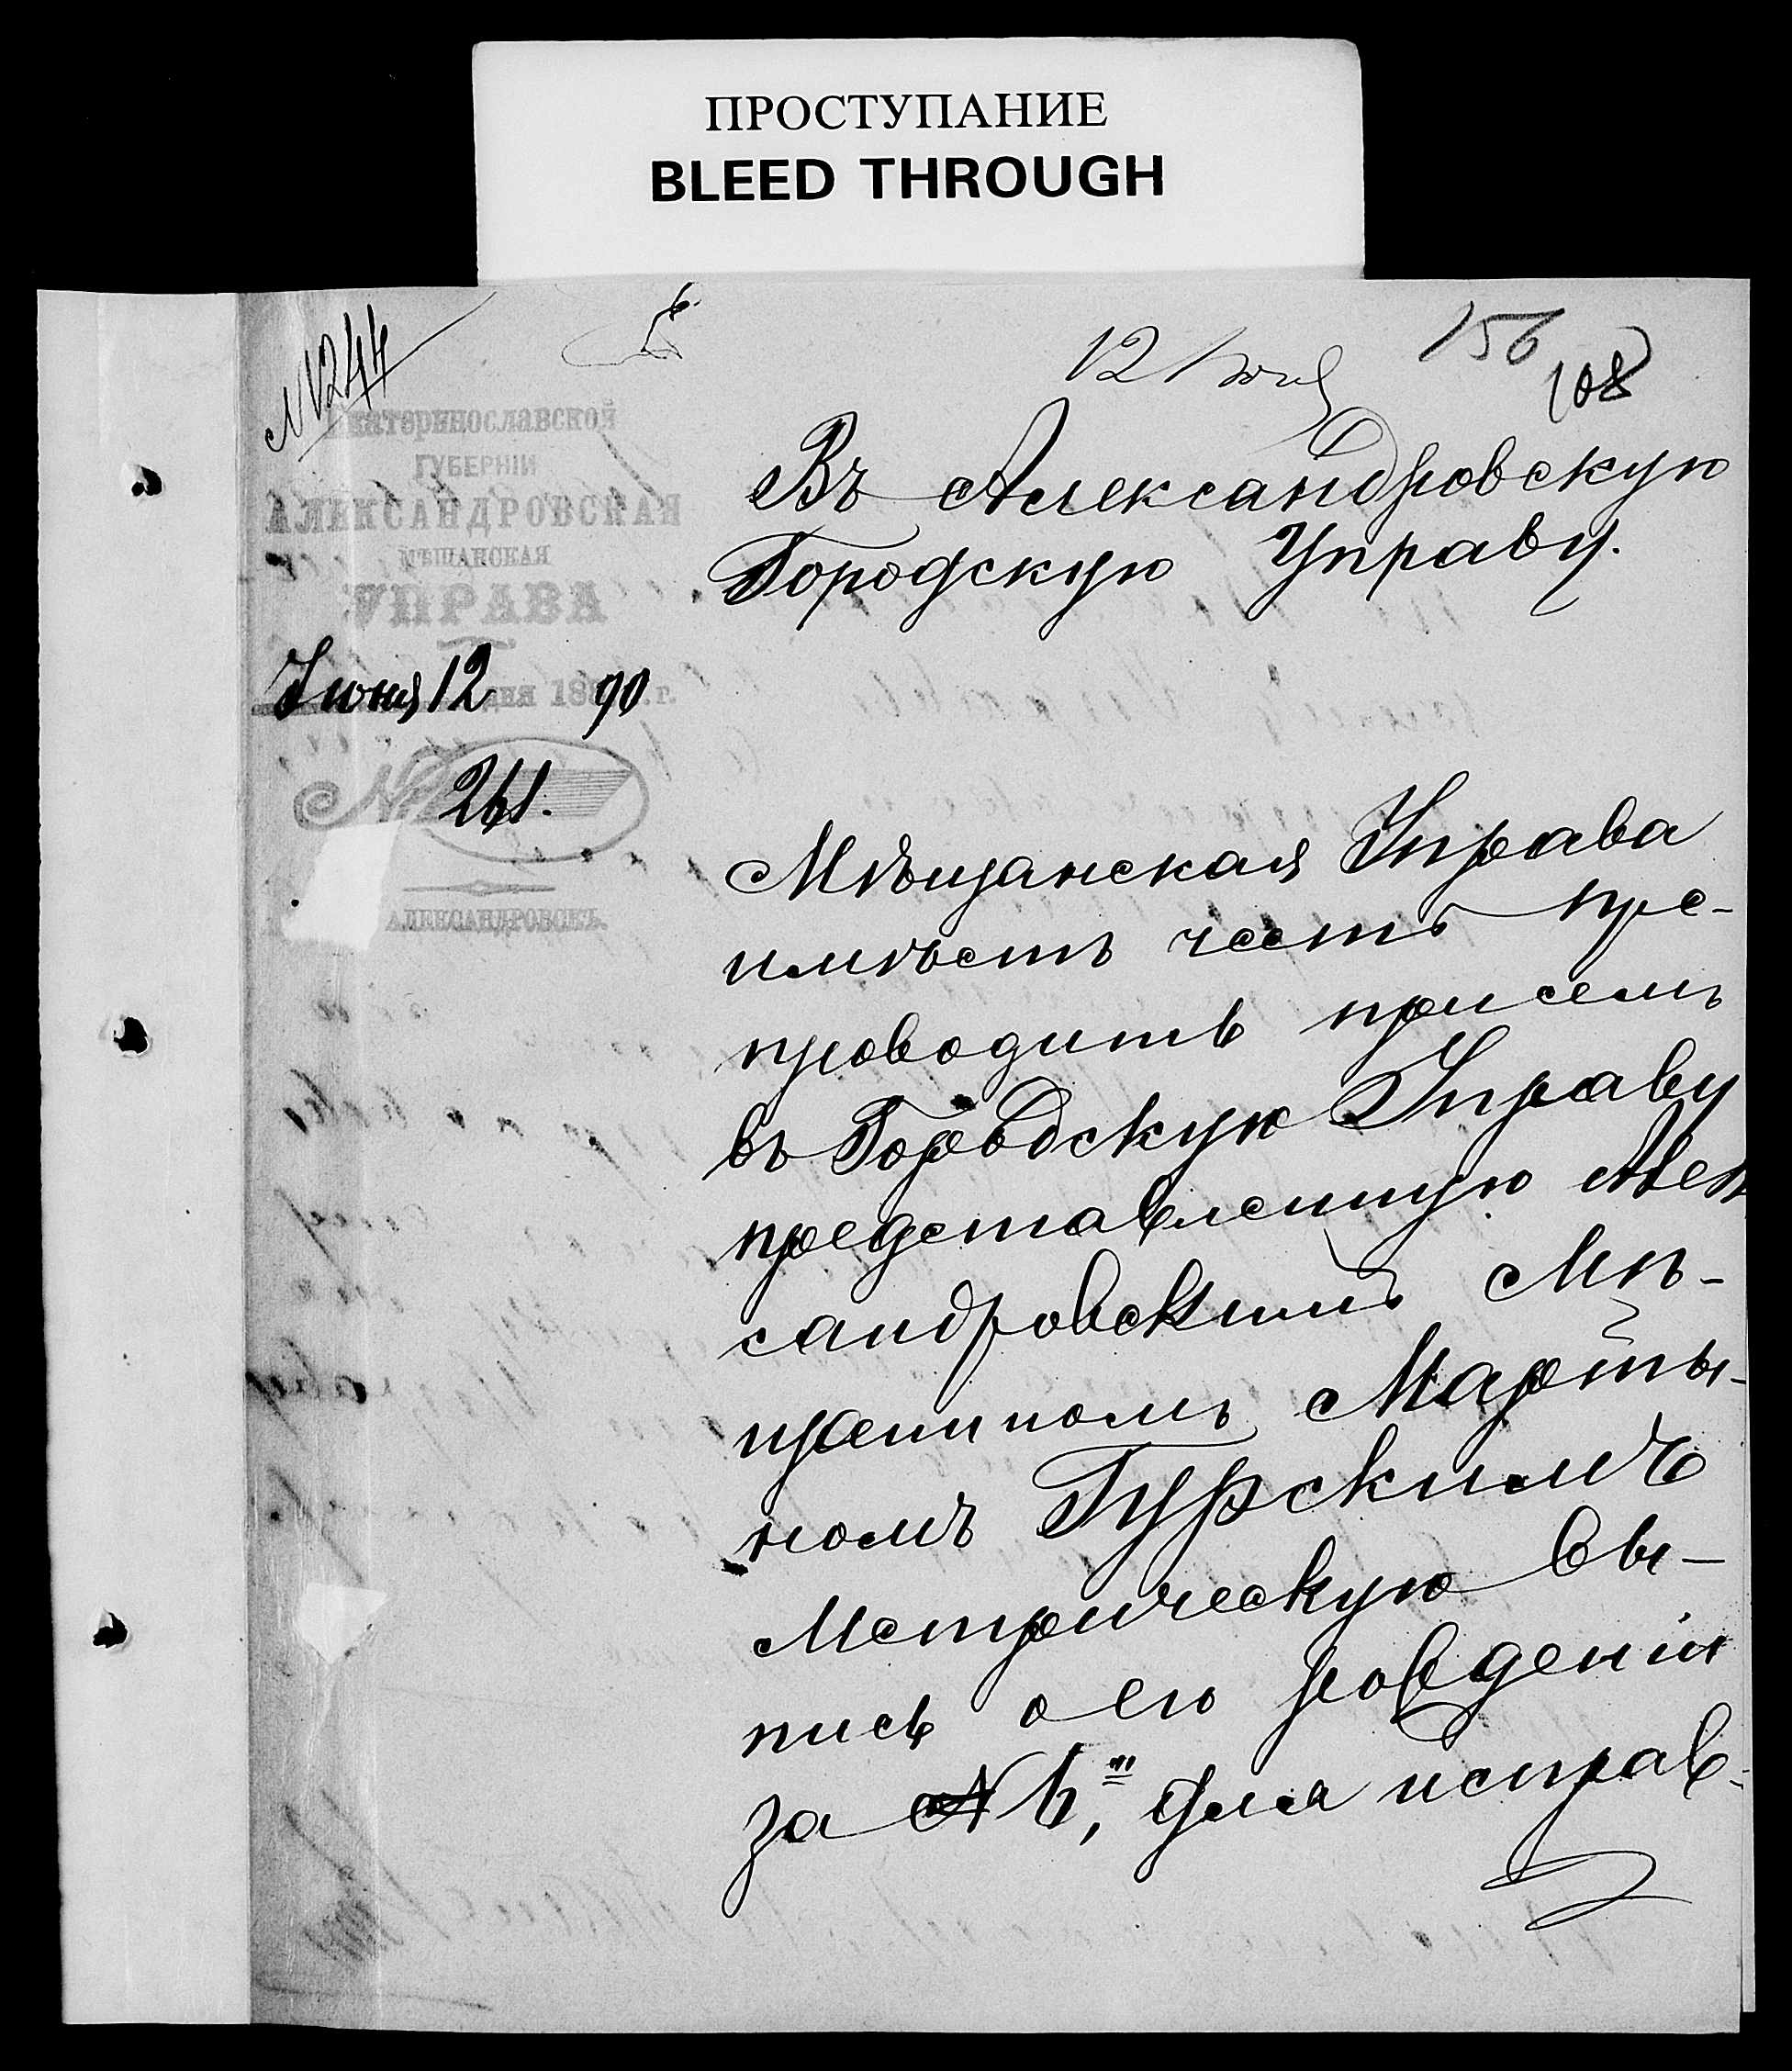 ПРОСТУПАНИЕ
BLEED THROUGH
156
12 Іюня
108
N 1244
Екатеринославской
ГУБЕРНІИ
АЛЕКСАНДРОВСКАЯ
МѢЩАНСКАЯ
УПРАВА
Іюня 12 дня 1890 г.
№ 261.
АЛЕКСАНДРОВСКЪ.
Въ Александровскую
Городскую Управу.
Мѣщанская Управа
имѣетъ честь пре-
проводить при семъ
въ Городскую Управу
представленную Алек
сандровскимъ Мѣ-
щаниномъ Марты-
номъ Гурскимъ
Метрическую вы-
пись о его рождении
за N 6, для исправ-